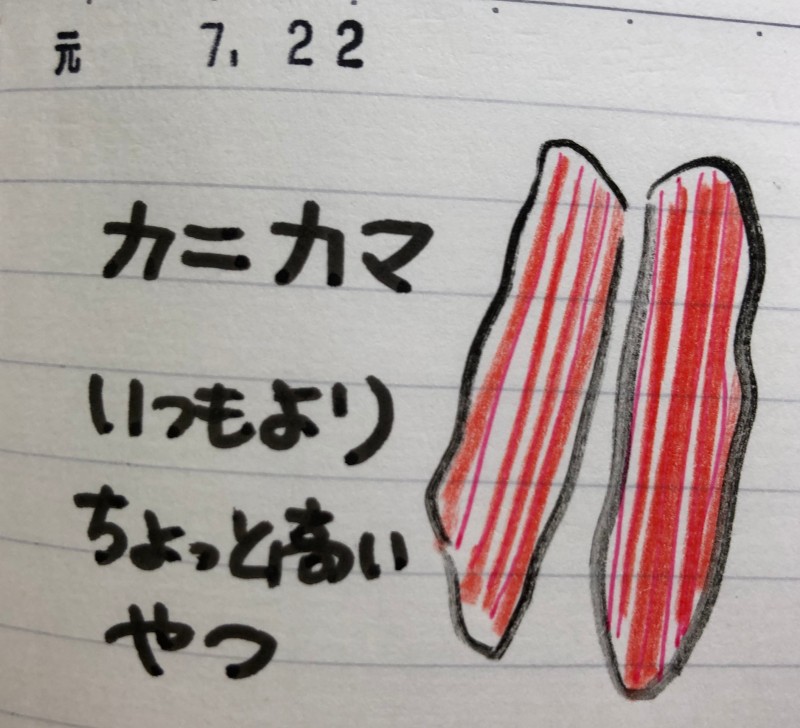 元 7. 22
カニカマ
いつもより
ちょっと高い
やつ